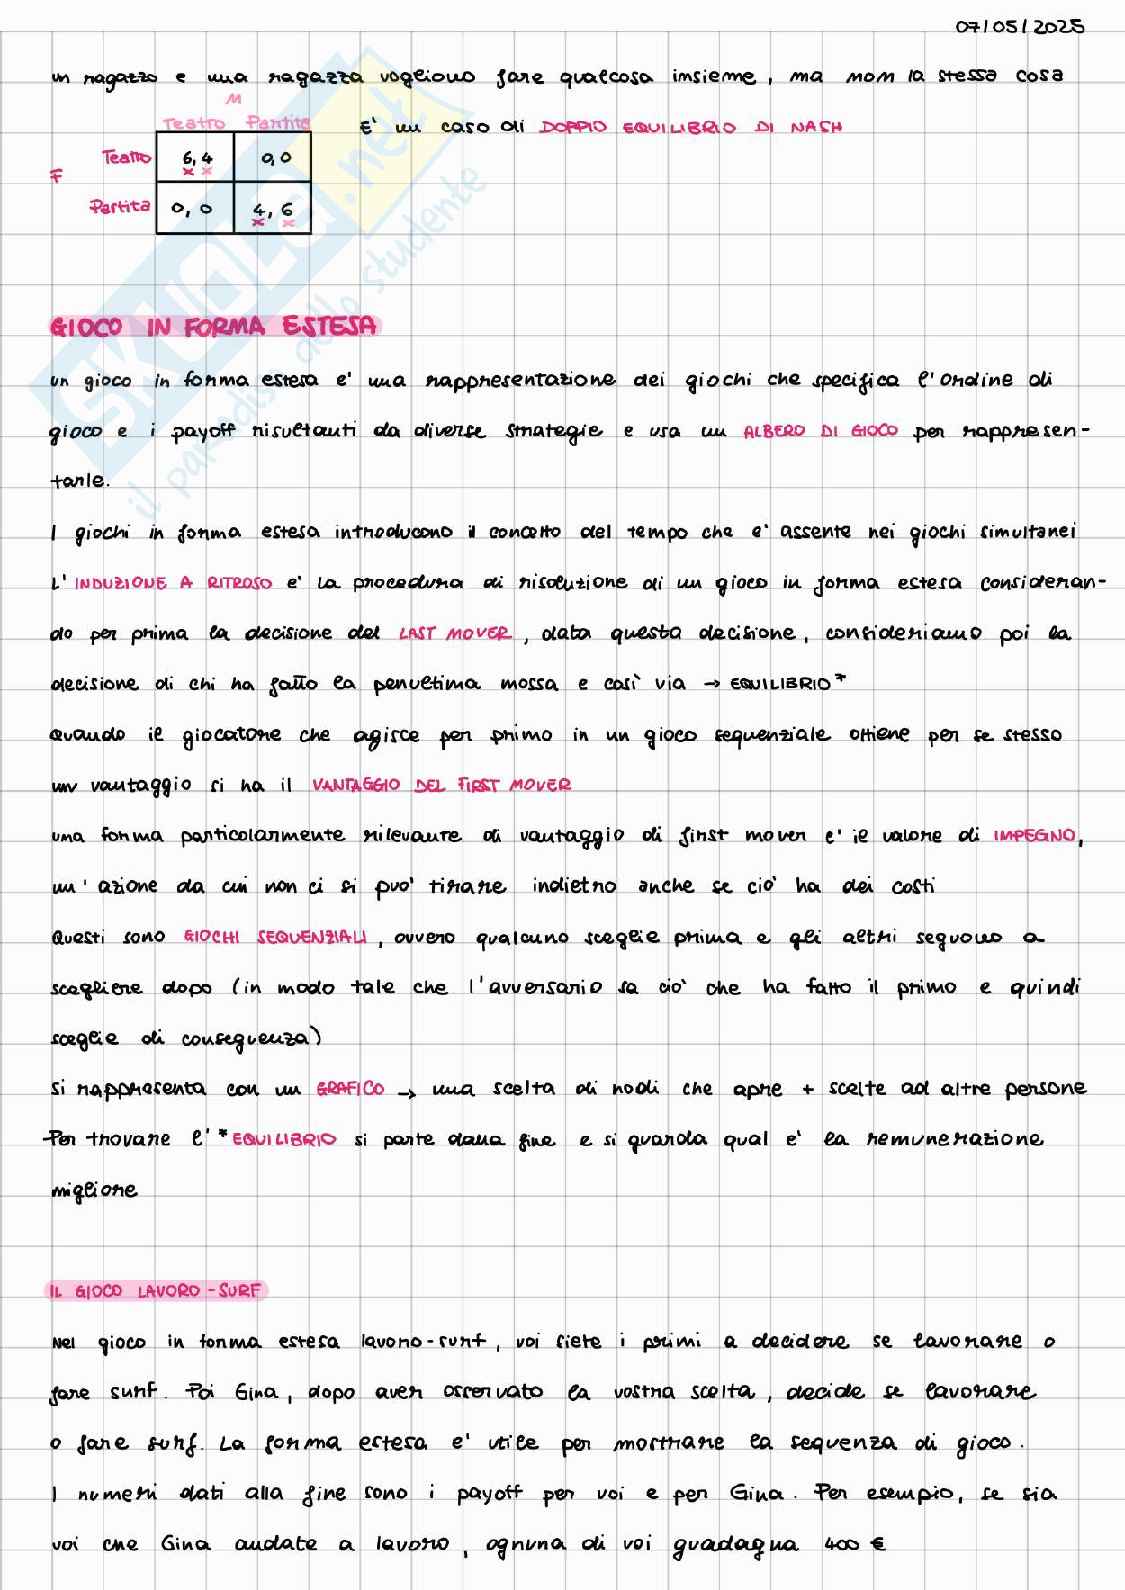 07/05/2025
un ragazzo e una ragazza vogliono fare qualcosa insieme, ma non la stessa cosa
M
Teatro Partita
È un caso di DOPPIO EQUILIBRIO DI NASH
F
Teatro 6,4 0,0
Partita 0,0 4,6
GIOCO IN FORMA ESTESA
un gioco in forma estesa e' una rappresentazione dei giochi che specifica l'ordine di
gioco e i payoff risultanti da diverse strategie e usa un ALBERO DI GIOCO per rappresen-
tarle.
I giochi in forma estesa introducono il concetto del tempo che e' assente nei giochi simultanei
L'INDUZIONE A RITROSO e' la procedura di risoluzione di un gioco in forma estesa consideran-
do per prima la decisione del LAST MOVER, data questa decisione, consideriamo poi la
decisione di chi ha fatto la penultima mossa e così via → EQUILIBRIO*
Quando il giocatore che agisce per primo in un gioco sequenziale ottiene per se stesso
un vantaggio si ha il VANTAGGIO DEL FIRST MOVER
una forma particolarmente rilevante di vantaggio di first mover e' il valore di IMPEGNO,
un'azione da cui non ci si puo' tirare indietro anche se cio' ha dei costi
Questi sono GIOCHI SEQUENZIALI, ovvero qualcuno sceglie prima e gli altri seguono a
scegliere dopo (in modo tale che l'avversario sa cio' che ha fatto il primo e quindi
sceglie di conseguenza)
si rappresenta con un GRAFICO → una scelta di nodi che apre + scelte ad altre persone
Per trovare l'*EQUILIBRIO si parte dalla fine e si guarda qual e' la remunerazione
migliore
IL GIOCO LAVORO-SURF
Nel gioco in forma estesa lavoro-surf, voi siete i primi a decidere se lavorare o
fare surf. Poi Gina, dopo aver osservato la vostra scelta, decide se lavorare
o fare surf. La forma estesa e' utile per mostrare la sequenza di gioco.
I numeri dati alla fine sono i payoff per voi e per Gina. Per esempio, se sia
voi che Gina andate a lavoro, ognuna di voi guadagna 400 €
SKUOLA.net
il paradiso dello studente